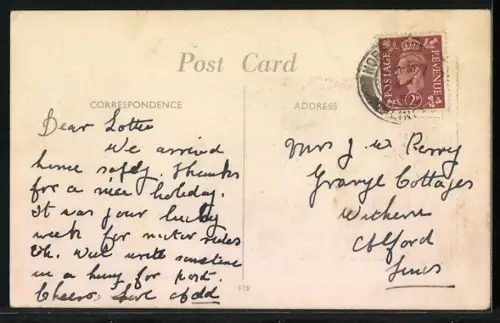 Post Card
CORRESPONDENCE
ADDRESS
POSTAGE REVENUE
2D
Dear Lottie
We arrived
home safely. Thanks
for a nice holiday.
It was your lucky
week for motor rides
Eh. Will write sometime
in a hurry for post.
Cheerio. Love
Mrs J. W. Perry
Grange Cottages
Withern
Alford
Lincs
116